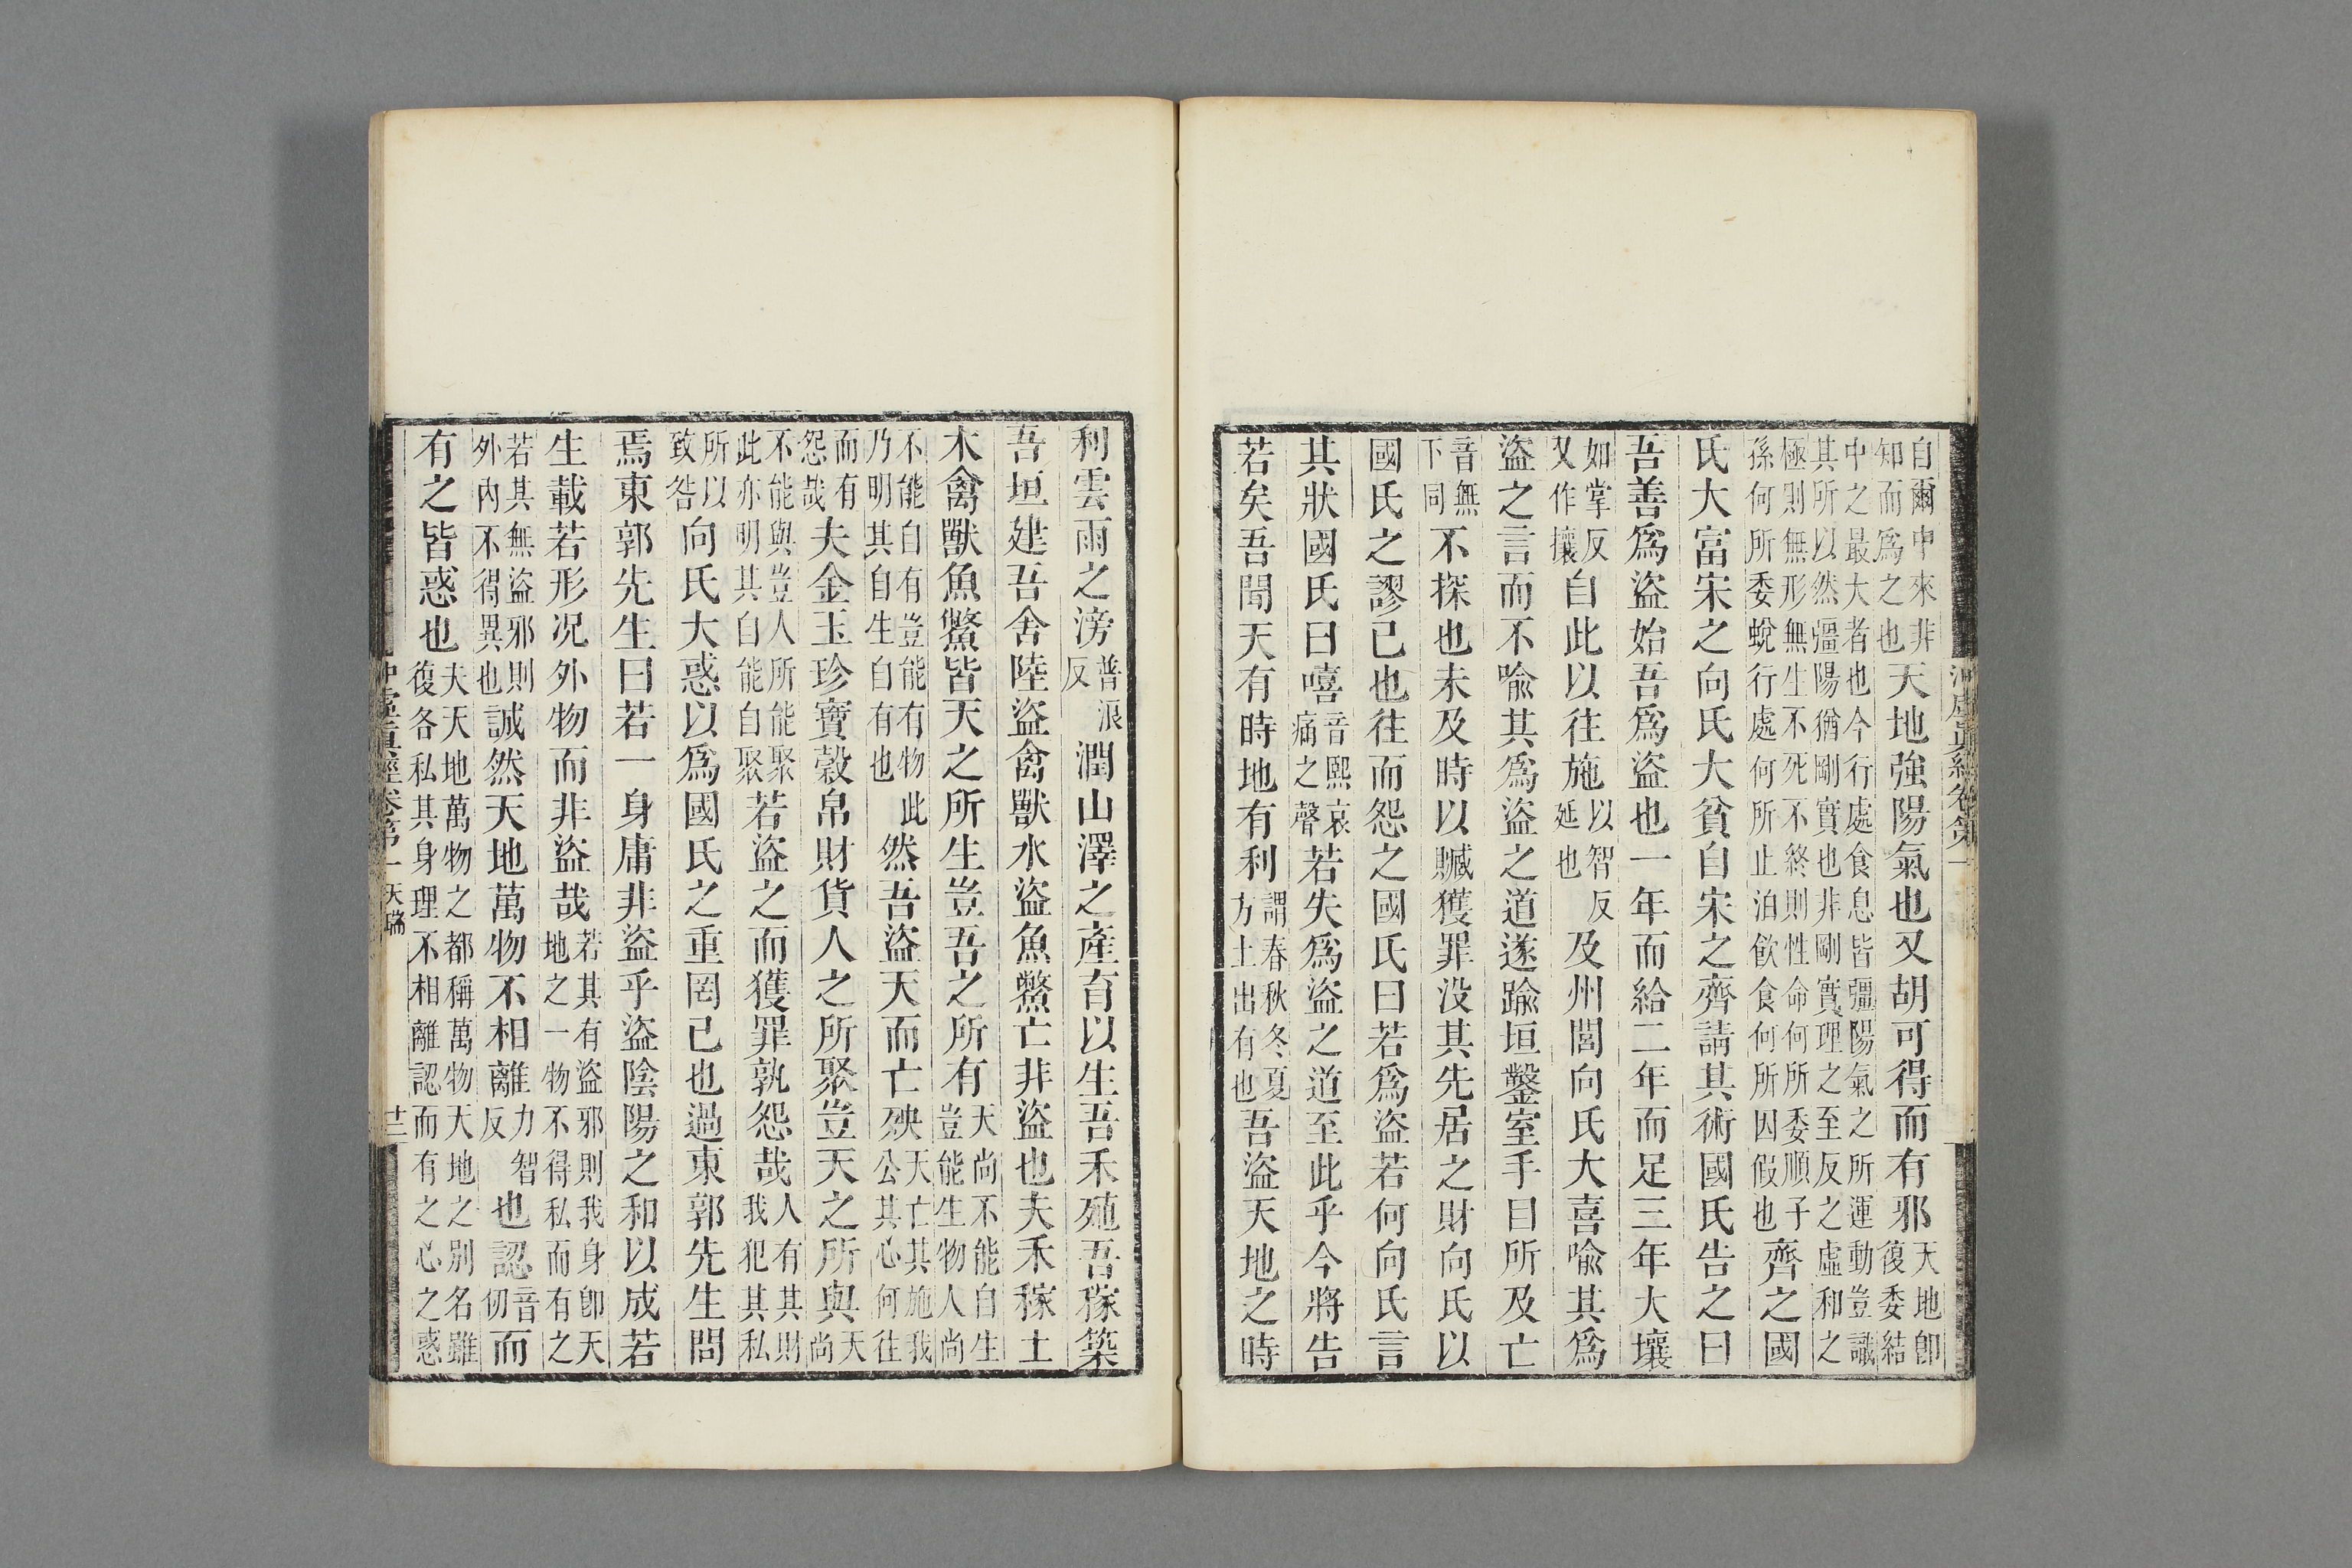 自爾中來非知而爲之也天地強陽氣也又胡可得而有邪天地卽復委結
中之最大者也今行處食息皆彊陽氣之所運動豈識其所以然彊陽猶剛實也非剛實理之至反之虛和之
極則無形無生不死不終則性命何所委順子孫何所委蛻行處何所止泊飮食何所因假也齊之國
氏大富宋之向氏大貧自宋之齊請其術國氏告之曰
吾善爲盜始吾爲盜也一年而給二年而足三年大壤
如掌反又作攘自此以往施以智反延也及州閭向氏大喜喻其爲
盜之言而不喻其爲盜之道遂踰垣鑿室手目所及亡
音無下同不探也未及時以贓獲罪没其先居之財向氏以
國氏之謬己也往而怨之國氏曰若爲盜若何向氏言
其狀國氏曰嘻音熙哀痛之聲若失爲盜之道至此乎今將告
若矣吾聞天有時地有利謂春秋冬夏方土出有也吾盜天地之時
利雲雨之滂普浪反潤山澤之產育以生吾禾殖吾稼築
吾垣建吾舍陸盜禽獸水盜魚鱉亡非盜也夫禾稼土
木禽獸魚鱉皆天之所生豈吾之所有天尚不能自生豈能生物人尚
不能自有豈能有物此乃明其自生自有也然吾盜天而亡殃天亡其施我公其心何往
而有怨哉夫金玉珍寶穀帛財貨人之所聚豈天之所與天尚
不能與豈人所能聚此亦明其自能自聚若盜之而獲罪孰怨哉人有其財我犯其私
所以致咎向氏大惑以爲國氏之重罔己也過東郭先生問
焉東郭先生曰若一身庸非盜乎盜陰陽之和以成若
生載若形况外物而非盜哉若其有盜邪則我身卽天地之一物不得私而有之
若其無盜邪則外內不得異也誠然天地萬物不相離力智反也認音仞而
有之皆惑也夫天地萬物之都稱萬物天地之别名雖復各私其身理不相離認而有之心之惑
沖虛至德真經卷第一 天瑞